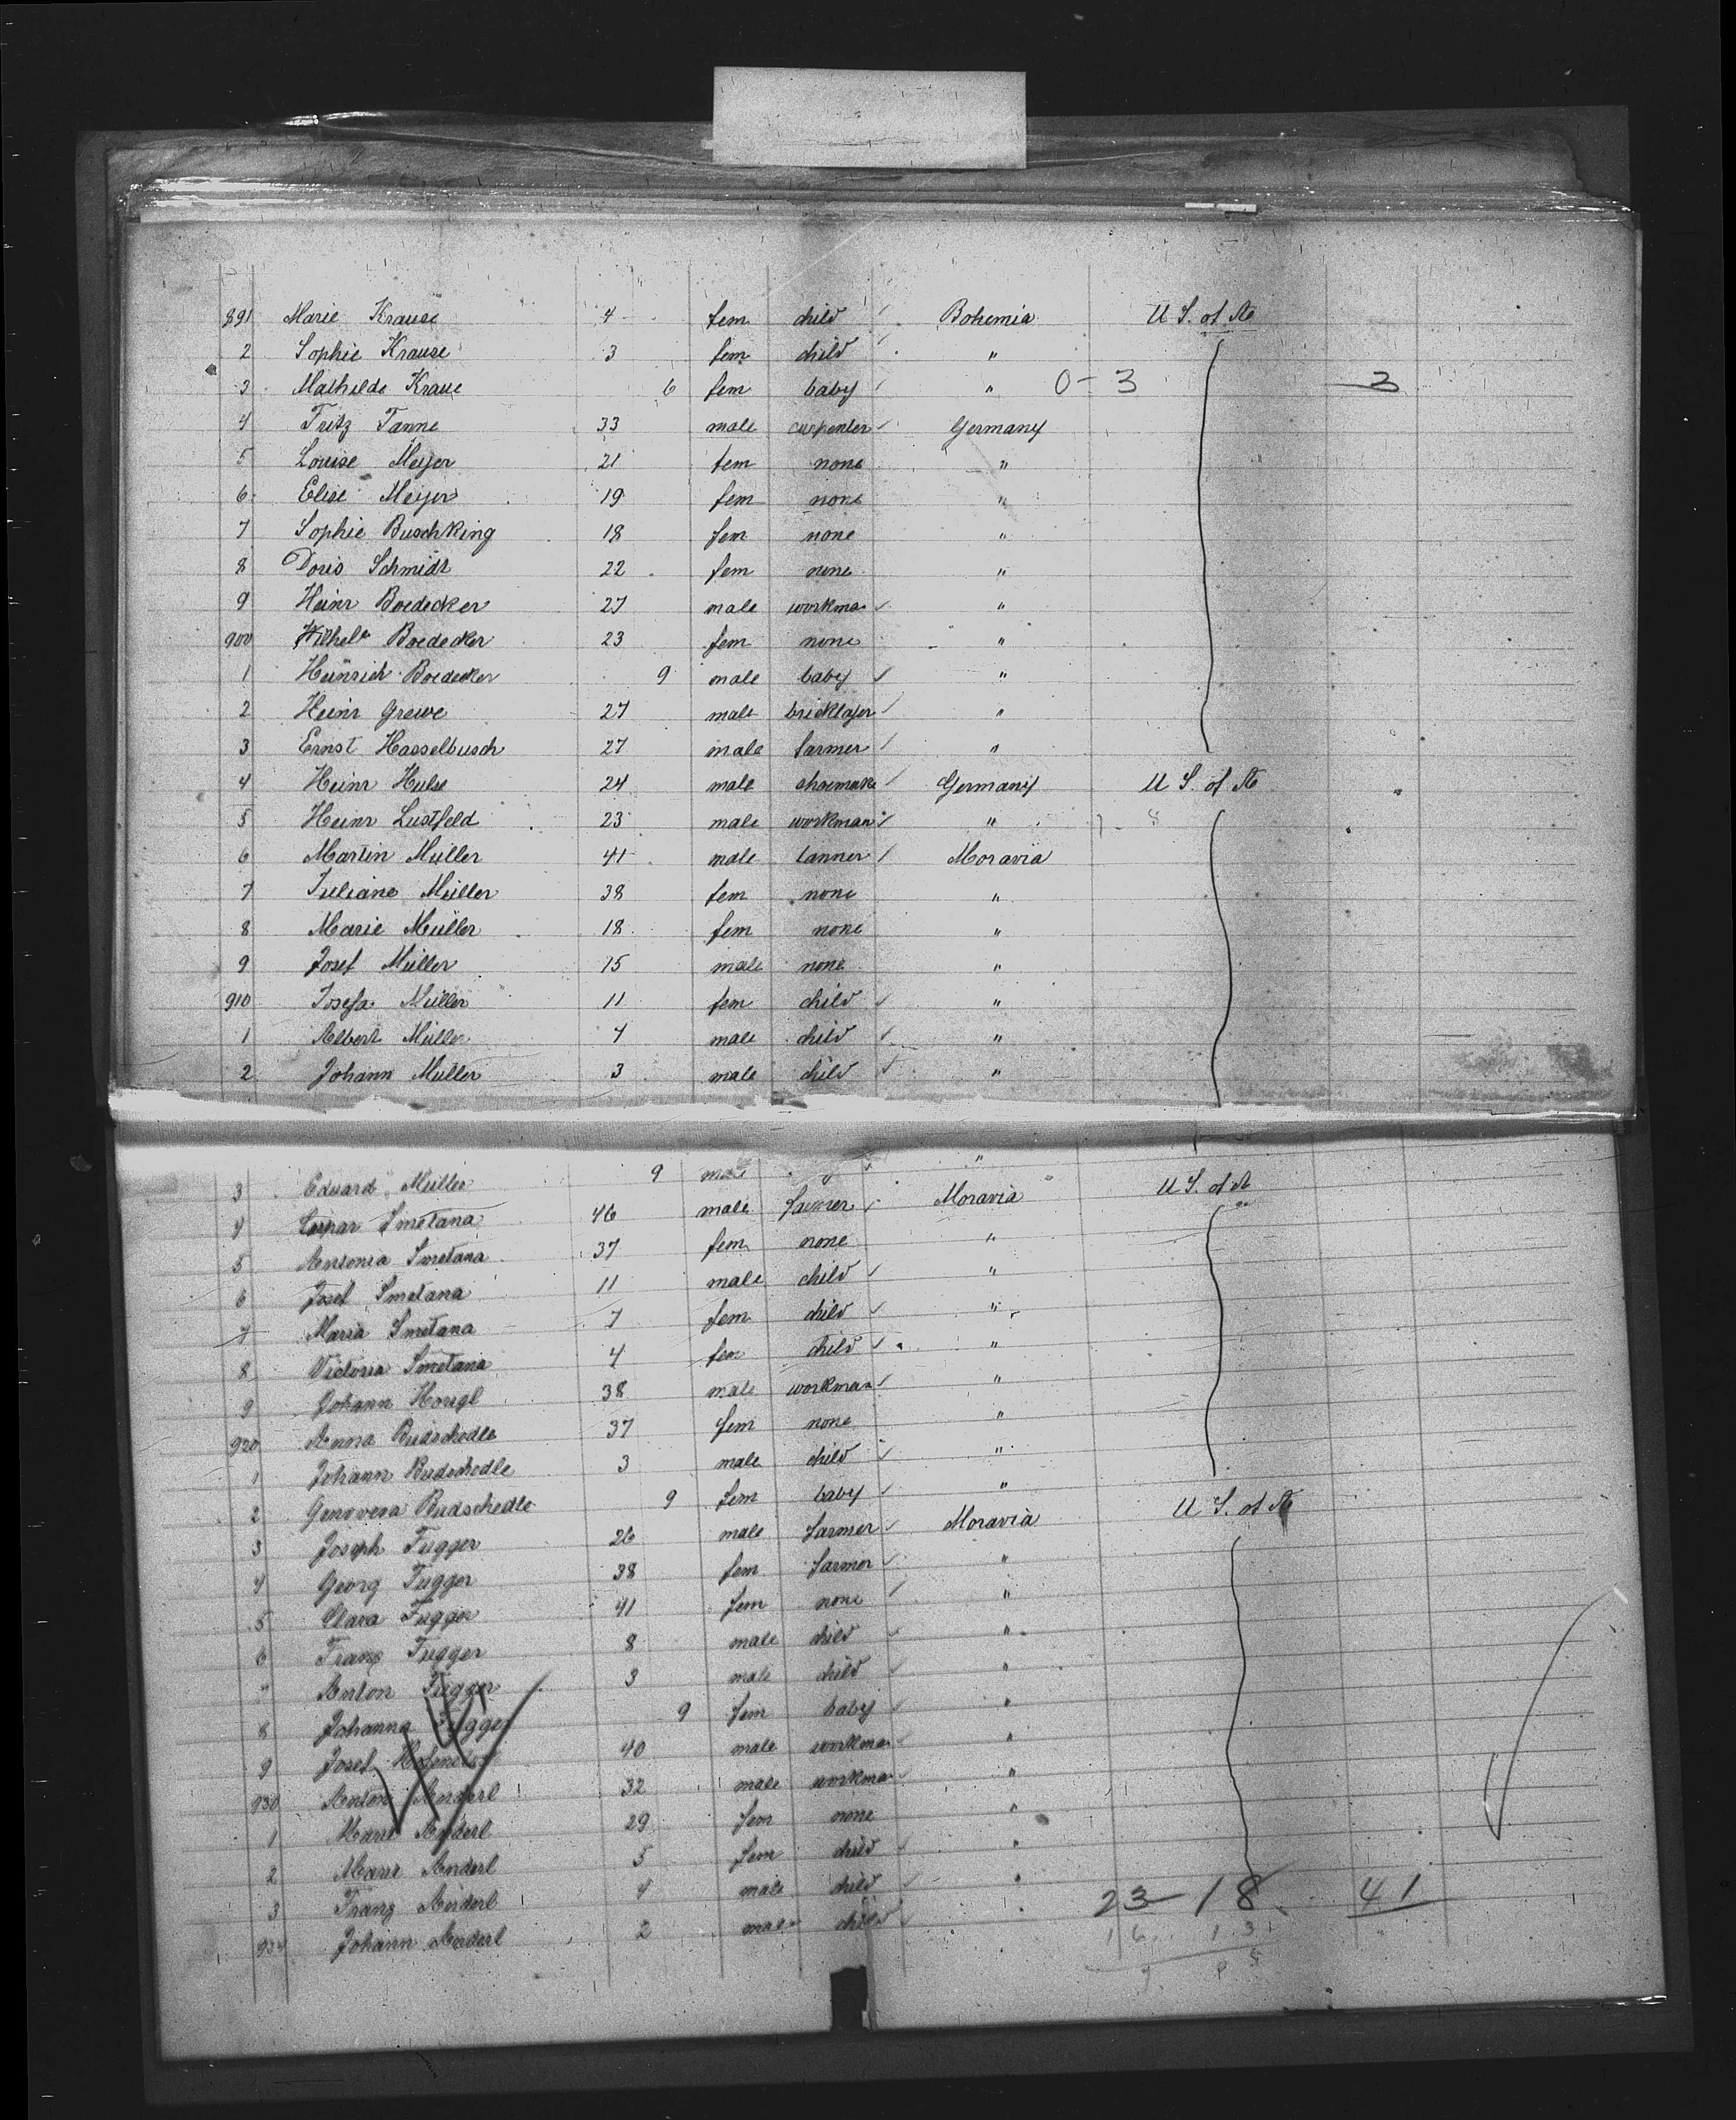 891 Marie Krause 4 fem child Bohemia U S. of A
2 Sophie Krause 3 fem child "
3 Mathilde Kraue 6 fem baby " 0-3 3
4 Fritz Tanne 33 male carpenter Germany
5 Louise Meyer 21 fem none "
6 Elise Meyer 19 fem none "
7 Sophie Buschking 18 fem none "
8 Doris Schmidt 22 fem none "
9 Heinr Boedecker 27 male workman "
900 Wilhel Boedecker 23 fem none "
1 Heinrich Boedecker 9 male baby "
2 Heinr Grewe 27 male bricklayer "
3 Ernst Hasselbusch 27 male farmer "
4 Heinr Hulse 24 male shoemake Germany U S. of A
5 Heinr Lustfeld 23 male workman "
6 Martin Müller 41 male tanner Moravia
7 Juliane Müller 38 fem none "
8 Marie Müller 18 fem none "
9 Josef Müller 15 male none "
910 Josefa Müller 11 fem child "
1 Albert Müller 4 male child "
2 Johann Müller 3 male child "
3 Eduard Müller 9 male " "
4 Caspar Smetana 46 male farmer Moravia U S. of A
5 Antonia Smetana 37 fem none "
6 Josef Smetana 11 male child "
7 Maria Smetana 7 fem child "
8 Victoria Smetana 4 fem child "
9 Johann 38 male workman "
920 Anna Budschedle 37 fem none "
1 Johann Budschedle 3 male child "
2 Genovera Budschedle 9 fem baby "
3 Joseph Fugger 26 male farmer Moravia U S. of A
4 Georg Fugger 38 fem farmer "
5 Clara Fugger 41 fem none "
6 Franz Fugger 8 male child "
" Anton Fugger 3 male child "
8 Johanna Fugger 9 fem baby "
9 Josef 40 male workman "
930 Anton Anderl 32 male workman "
1 Marie Anderl 29 fem none "
2 Marie Anderl 5 fem child "
3 Franz Anderl 4 male child "
934 Johann Anderl 2 male child
23-18 41
16 13